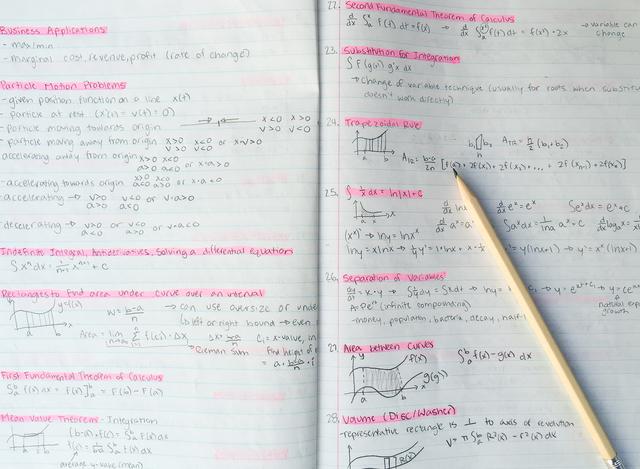 Business Applications
- max/min
- marginal cost, revenue, profit (rate of change)
Particle Motion Problems
- given position function on a line x(t)
- particle at rest (x'(t) = v(t) = 0)
- particle moving towards origin x<0 x>0
v>0 v<0
- particle moving away from origin x>0 x<0 or x·v>0
v>0 v<0
- accelerating away from origin x>0 x<0
a>0 a<0 or x·a>0
- accelerating towards origin x>0 x<0 or x·a<0
a<0 a>0
- accelerating → v>0 v<0 or v·a>0
a>0 a<0
- decelerating → v>0 or v<0 or v·a<0
a<0 a>0
Indefinite Integral, Antiderivatives, Solving a differential equations
∫ xⁿ dx = 1/n+1 xⁿ⁺¹ + c
Rectangles to find area under curve over an interval
y=f(x)
w = b-a/n → can use oversize or unde
left or right bound → even
Area = lim n→∞ Σ f(ci)·Δx Δx = b-a/n ci = x-value, in
→ Rieman Sum Find height of
= a + b-a/n · i
First Fundamental Theorem of Calculus
∫ₐᵇ f(x) dx = F(x)]ₐᵇ = F(b) - F(a)
Mean Value Theorem - Integration
(b-a)·f(c) = ∫ₐᵇ f(x) dx
average y-value (mean)
22. Second Fundamental Theorem of Calculus
d/dx ∫ₐˣ f(t) dt = f(x) → d/dx ∫ₐ f(t) dt = f(x²)·2x → variable can
change
23. Substitution for Integration
∫ f(g(x)) g'x dx
→ change of variable technique (usually for roots when substitu
doesn't work directly)
24. Trapezoidal Rule
b₁ h b₂ A = h/2 (b₁+b₂)
a b
b-a/2n [f(a) + 2f(x₁) + 2f(x₂) + ... + 2f(xₙ₋₁)
25. ∫ 1/x dx = ln|x| + c
d/dx lnx d/dx eˣ = eˣ ∫eˣdx = eˣ + c
∫aˣdx = 1/lna aˣ + c
lny = xlnx
y(lnx+1)
26. Separation of Variables
dy/dt = k·y → ∫ 1/y dy = ∫kdt → lny =
natural
growth
(infinite compounding)
- money, population, bacteria, decay, half-l
27. Area between Curves
y f(x) ∫ₐᵇ f(x) - g(x) dx
g(x)
a b x
28. Volume (Disc/Washer)
- representative rectangle is ⊥ to axis of revolution
V = π∫ₐᵇ R²(x) - r²(x) dx
R(x)